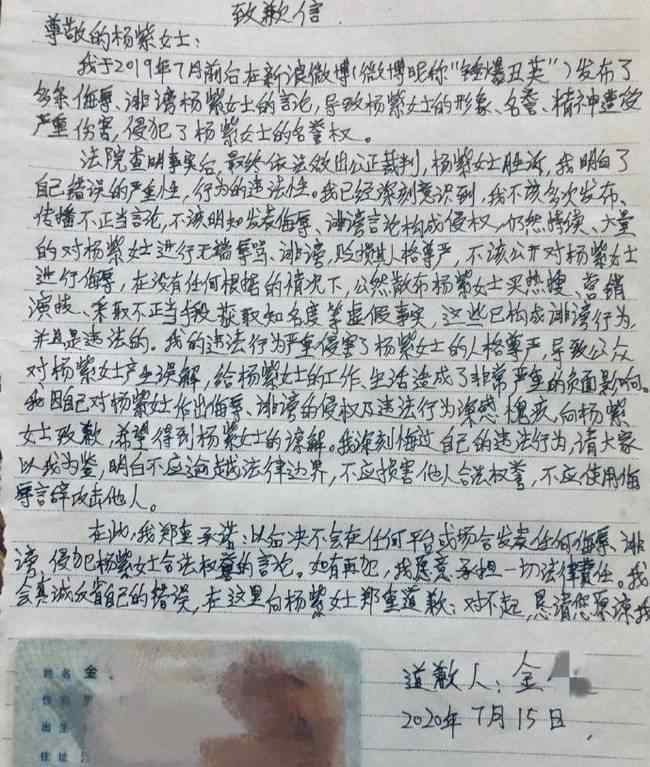 致歉信
尊敬的杨紫女士:
我于2019年7月前后在新浪微博(微博昵称"锤爆丑英")发布了
多条侮辱、诽谤杨紫女士的言论,导致杨紫女士的形象、名誉、精神遭受
严重伤害,侵犯了杨紫女士的名誉权。
法院查明事实后,最终依法做出公正裁判,杨紫女士胜诉,我明白了
自己错误的严重性,行为的违法性。我已经深刻意识到,我不该多次发布、
传播不正当言论,不该明知发表侮辱、诽谤言论构成侵权,仍然持续、大量
的对杨紫女士进行无端辱骂、诽谤,贬损其人格尊严,不该公开对杨紫女士
进行侮辱,在没有任何根据的情况下,公然散布杨紫女士买热搜、营销
演技、采取不正当手段获取知名度等虚假事实,这些已构成诽谤行为,
并且是违法的。我的违法行为严重侵害了杨紫女士的人格尊严,导致公众
对杨紫女士产生误解,给杨紫女士的工作、生活造成了非常严重的负面影响。
我因自己对杨紫女士作出侮辱、诽谤的侵权及违法行为深感愧疚,向杨紫
女士致歉,希望得到杨紫女士的谅解。我深刻悔过自己的违法行为,请大家
以我为鉴,明白不应逾越法律边界,不应损害他人合法权誉,不应使用侮
辱言辞攻击他人。
在此,我郑重承诺:以后决不会在任何平台或场合发表任何侮辱、诽
谤、侵犯杨紫女士合法权益的言论。如有再犯,我愿意承担一切法律责任。我
会真诚反省自己的错误,在这里向杨紫女士郑重道歉:对不起,恳请您原谅我
道歉人:金
2020年7月15日
姓名 金
性别
出生
住址